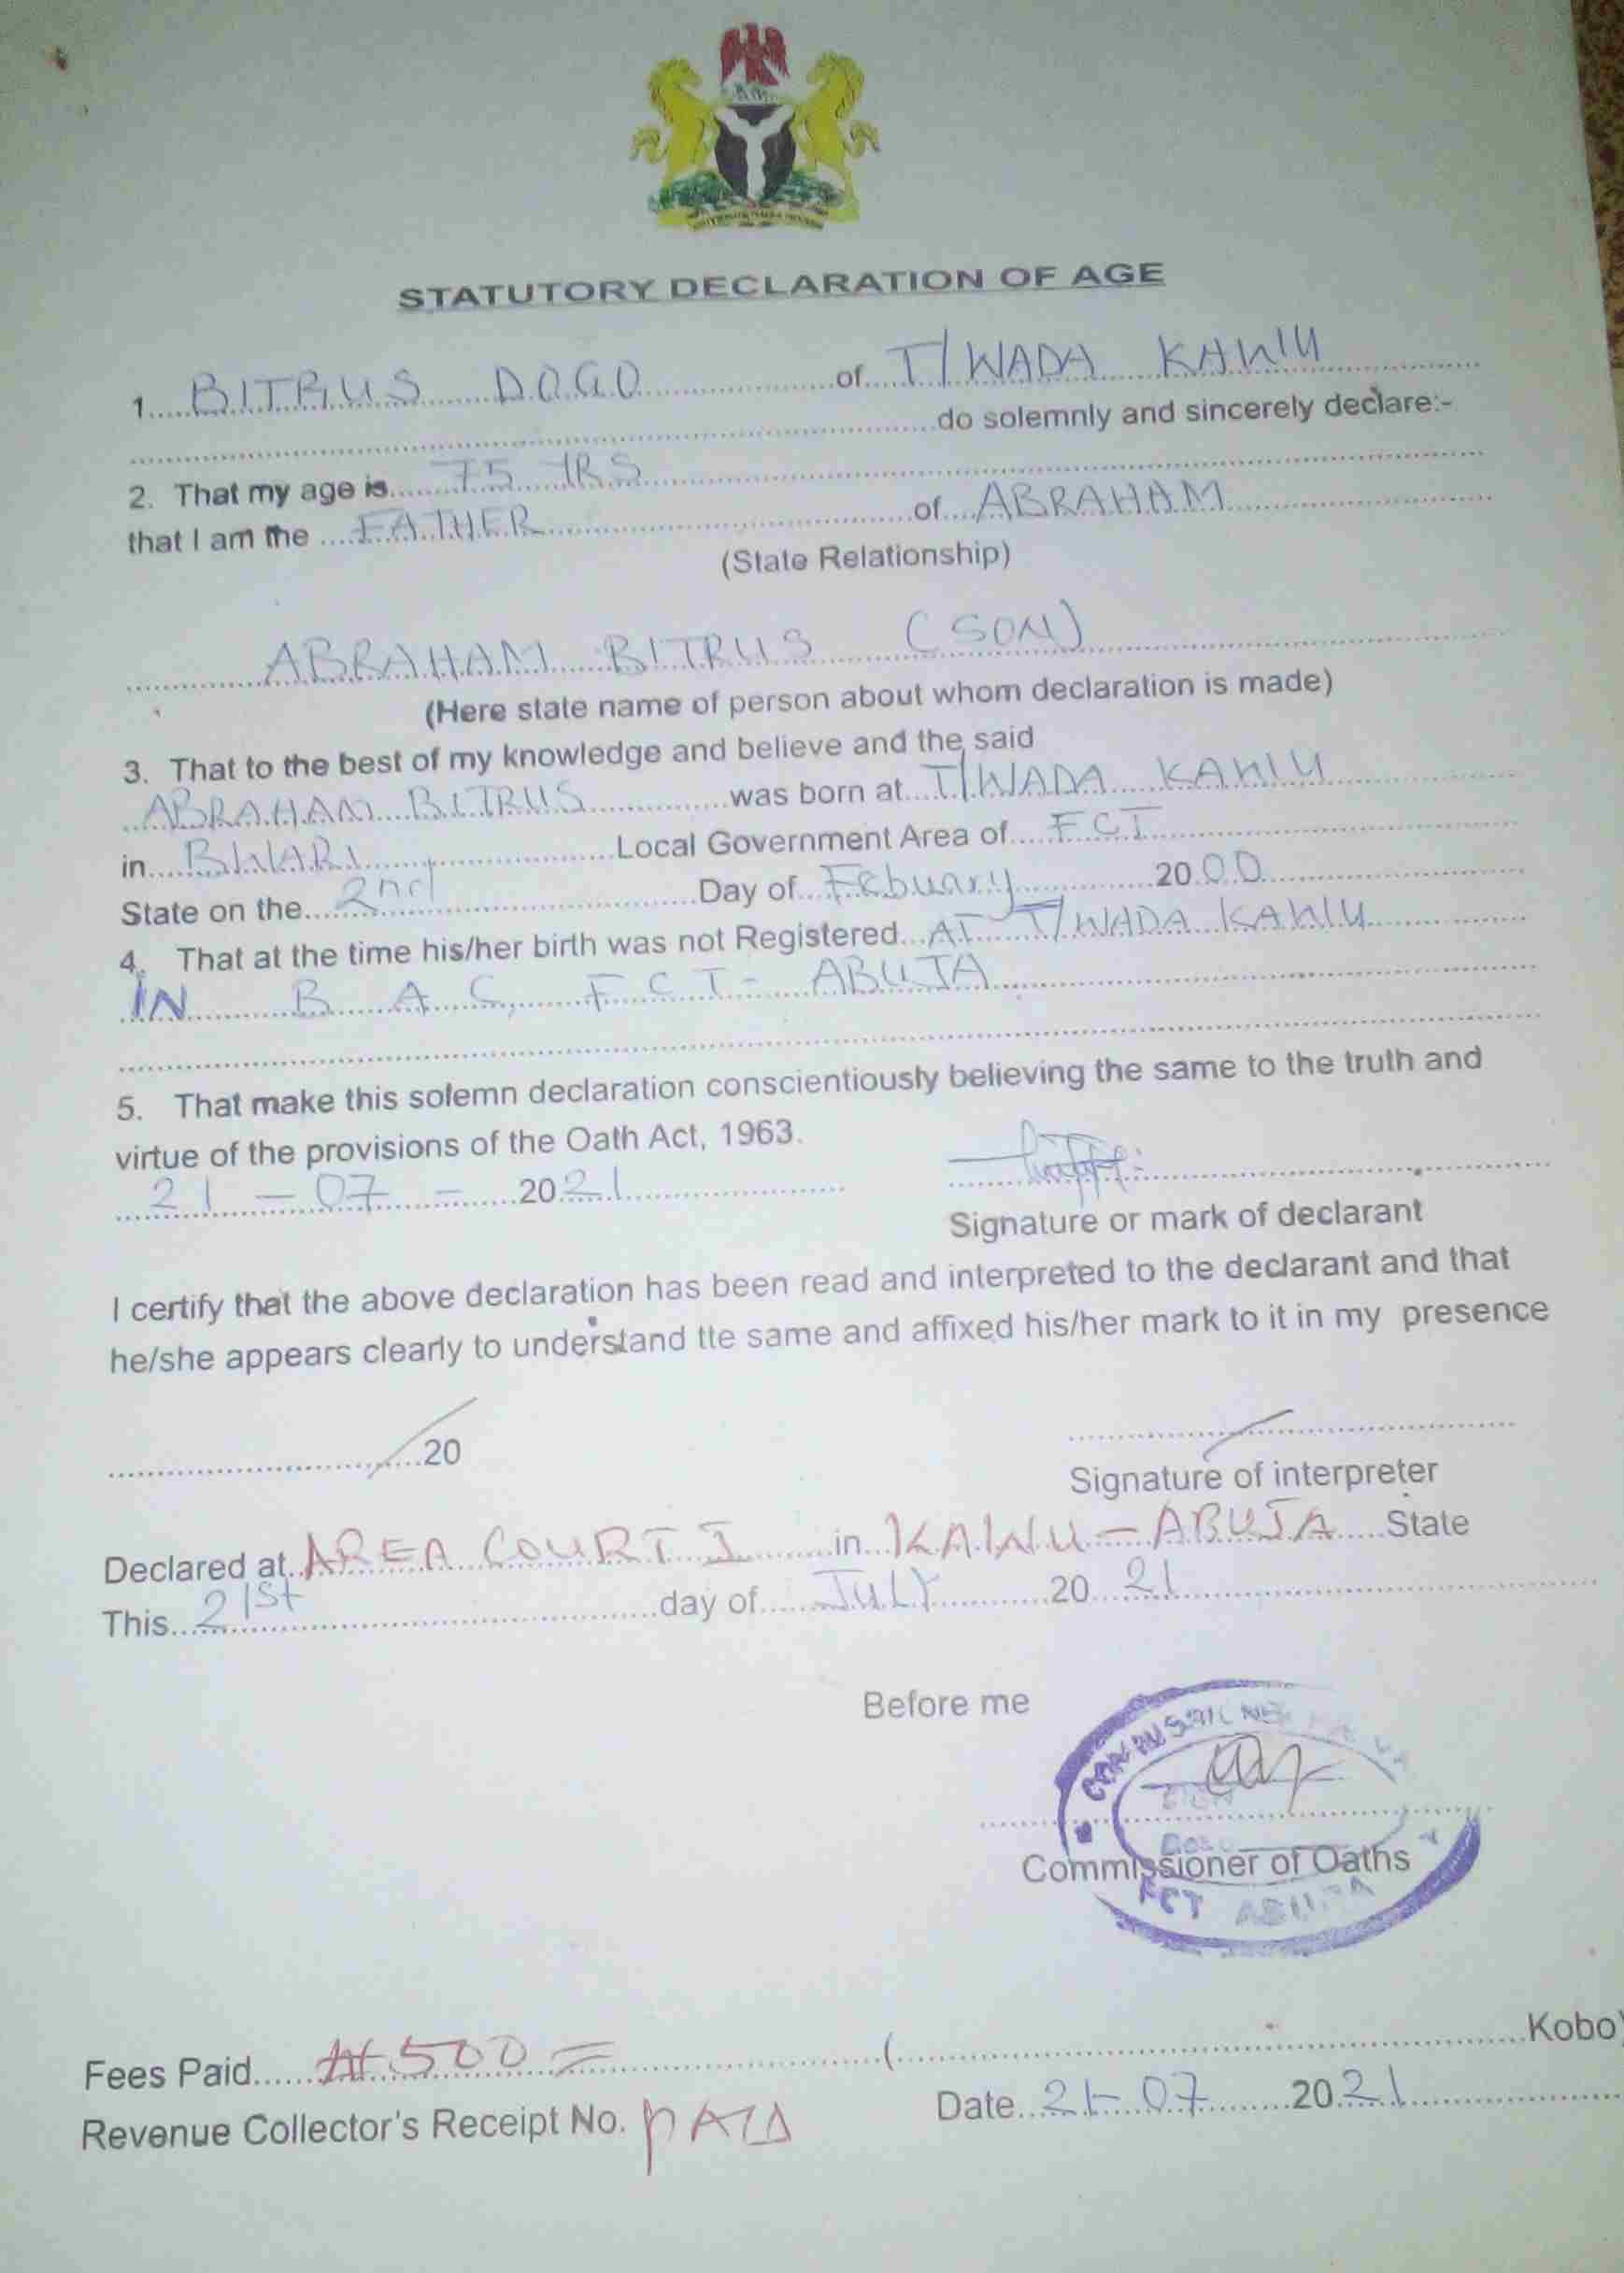 STATUTORY DECLARATION OF AGE
1. BITRUS DOGO of T/WADA KAWU
do solemnly and sincerely declare:-
2. That my age is 75 YRS
that I am the FATHER of ABRAHAM
(State Relationship)
ABRAHAM BITRUS (SON)
(Here state name of person about whom declaration is made)
3. That to the best of my knowledge and believe and the said
ABRAHAM BITRUS was born at T/WADA KAWU
in BWARI Local Government Area of FCT
State on the 2nd Day of Febuary 2000
4. That at the time his/her birth was not Registered AT T/WADA KAWU
IN B A C, F C T - ABUJA
5. That make this solemn declaration conscientiously believing the same to the truth and
virtue of the provisions of the Oath Act, 1963.
21 - 07 - 2021
Signature or mark of declarant
I certify that the above declaration has been read and interpreted to the declarant and that
he/she appears clearly to understand tte same and affixed his/her mark to it in my presence
20
Signature of interpreter
Declared at AREA COURT I in KAWU - ABUJA State
This 21st day of JULY 2021
Before me
Commissioner of Oaths
FCT ABUJA
Fees Paid ₦500= ( Kobo)
Revenue Collector's Receipt No. PAID Date 21-07 2021